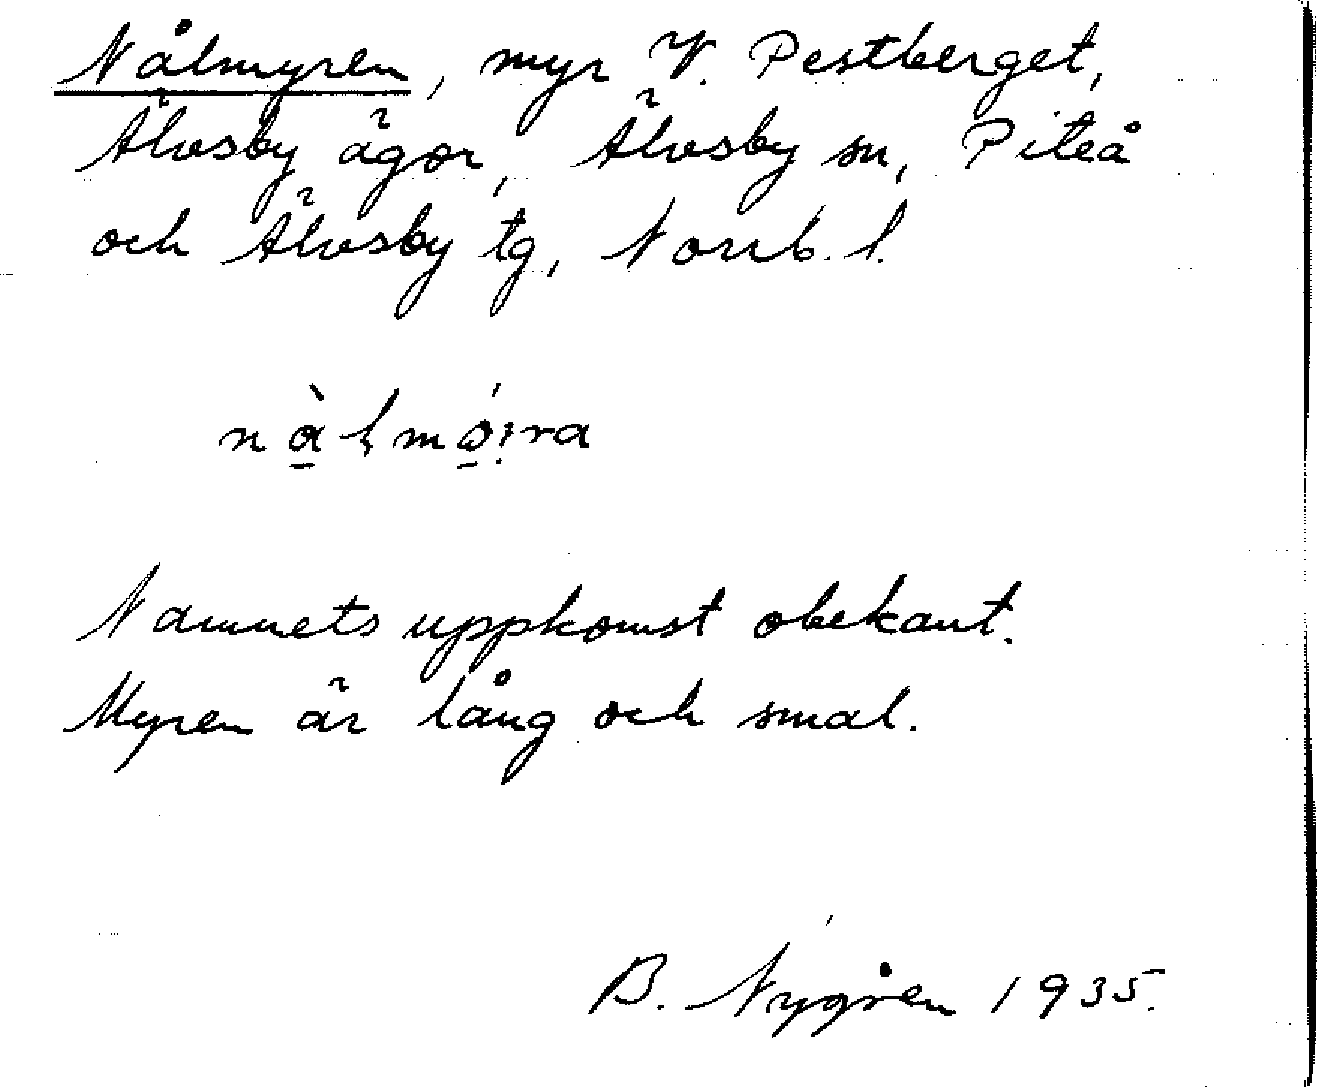 Nålmyren, myr V. Pestberget,
Älvsby ägor, Älvsby sn, Piteå
och Älvsby tg, Norrb. l.
nà̱ɬmó̱:ra
Namnets uppkomst obekant.
Myren är lång och smal.
B. Nygren 1935.